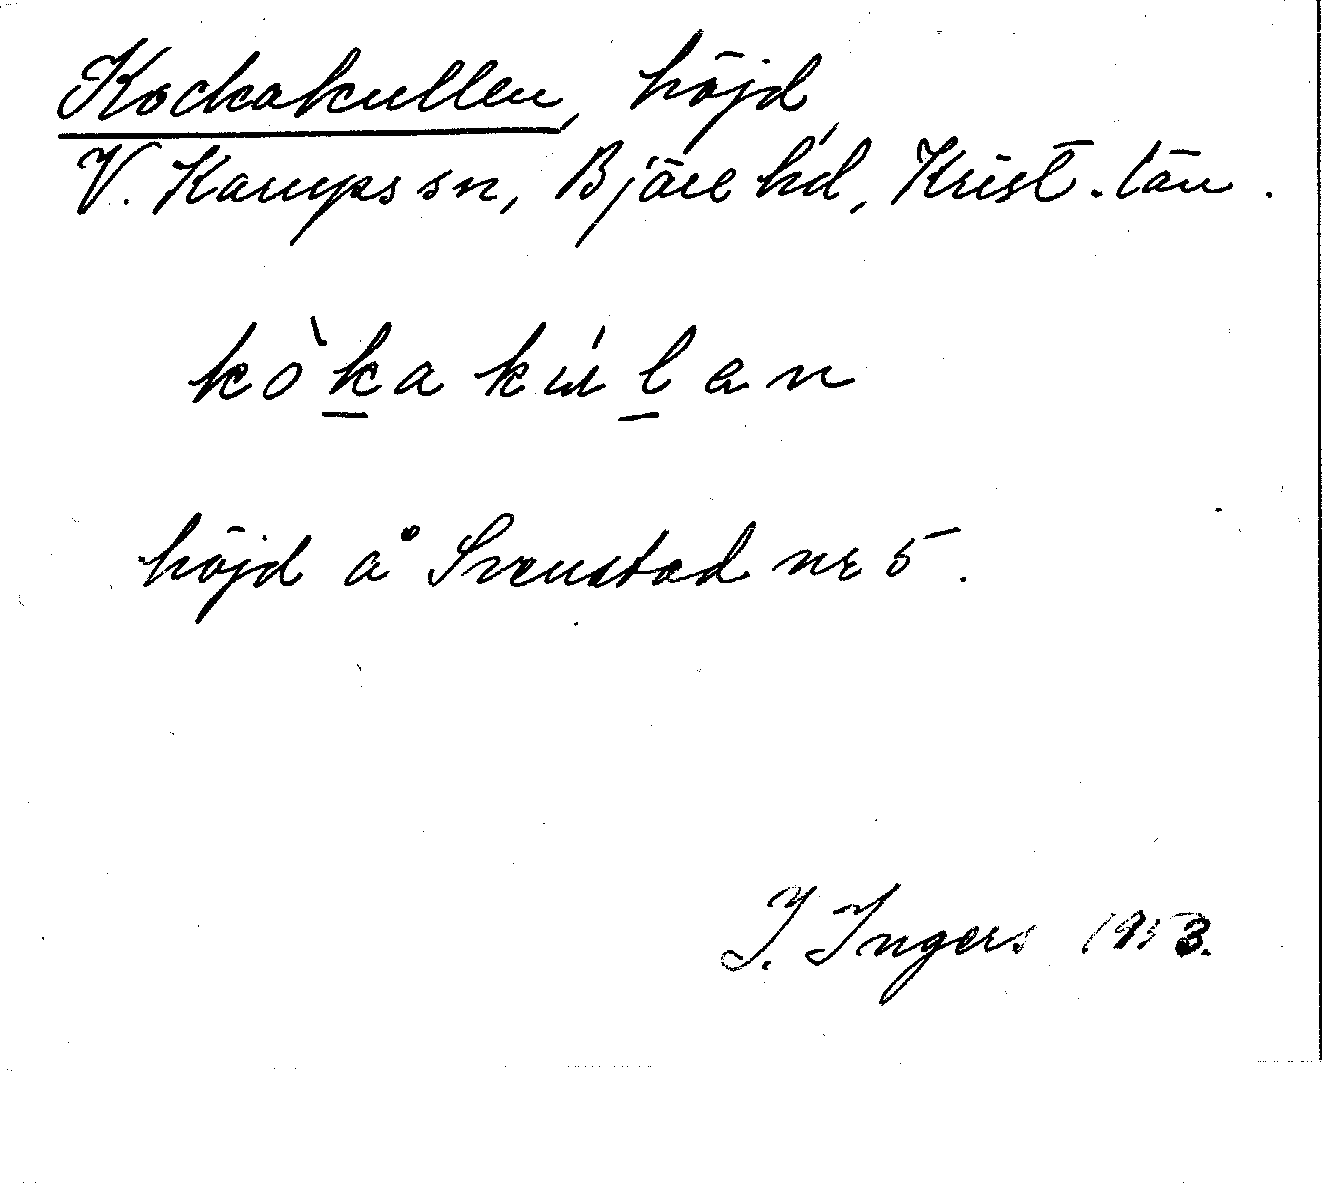 Kockakullen, höjd
V. Karups sn, Bjäre hd, Krist. län.
kòkakúlan
höjd å Svenstad nr 5.
I. Ingers 1953.